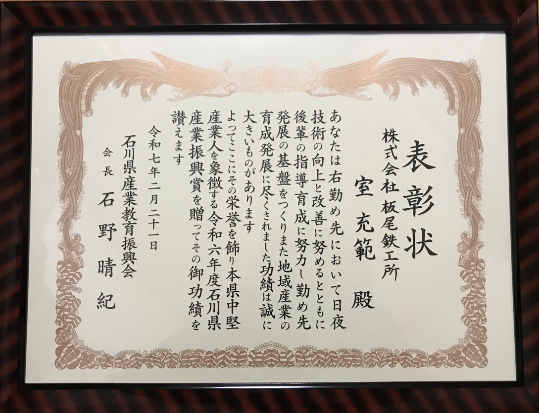 表彰状
株式会社 板尾鉄工所
室 充範 殿
あなたは右勤め先において日夜
技術の向上と改善に努めるとともに
後輩の指導育成に努力し勤め先
発展の基盤をつくりまた地域産業の
育成発展に尽くされました功績は誠に
大きいものがあります
よってここにその栄誉を飾り本県中堅
産業人を象徴する令和六年度石川県
産業振興賞を贈ってその御功績を
讃えます
令和七年二月二十一日
石川県産業教育振興会
会長 石野晴紀